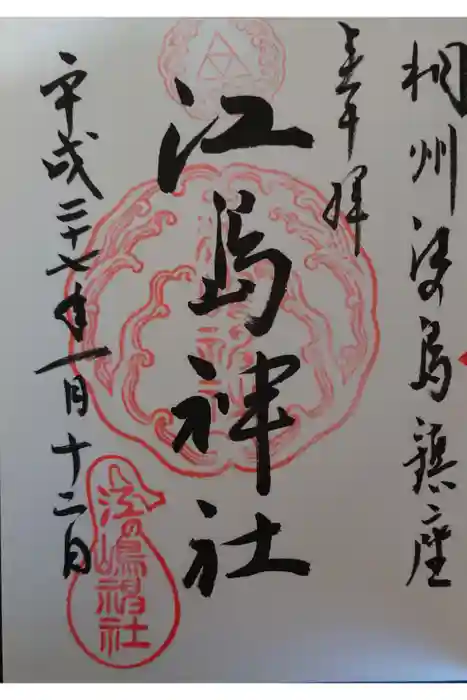 相州江島鎮座
奉拝
江島神社
平成二十七年一月十二日
江の嶋神社